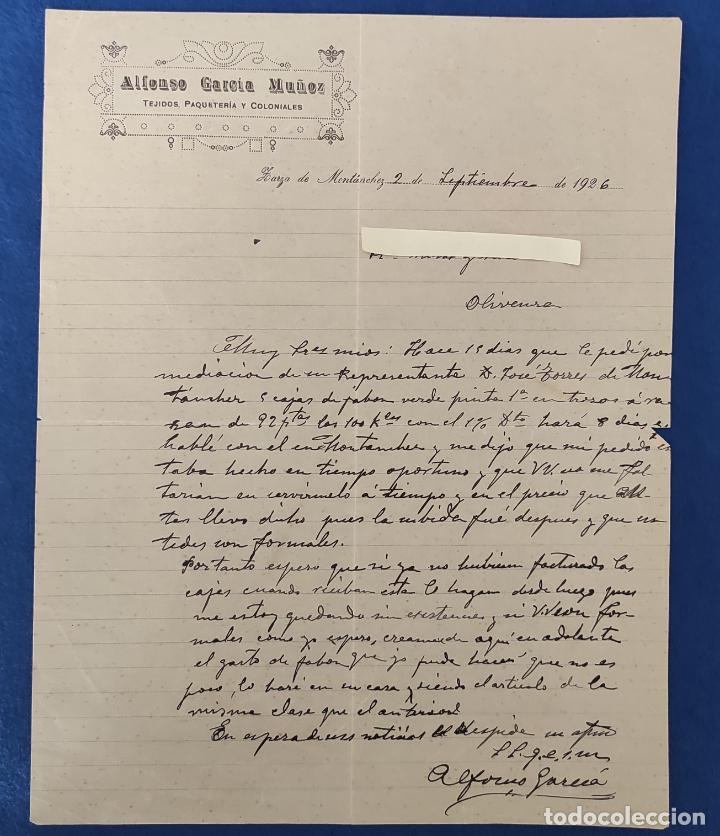 Alfonso García Muñoz
TEJIDOS, PAQUETERÍA Y COLONIALES
Zarza de Montánchez 2 de Septiembre de 1926
Olivenza
Muy Sres mios: Hace 15 dias que le pedí por
mediacion de su Representante D. José Torres de Mon-
tánchez 5 cajas de jabon verde pinta 1ª en trozos á ra-
zon de 92 ptas los 100 Kgs con el 1% Dto hará 8 dias
hablé con el en Montanchez y me dijo que mi pedido es
taba hecho en tiempo oportuno y que VV. no me fal-
tarian en servirmelo á tiempo y en el precio que
llevo dicho pues la subida fué despues y que us-
tedes son formales.
Por tanto espero que si ya no hubieran facturado las
cajas cuando reciban esta lo hagan desde luego pues
me estoy quedando sin existencias y si VV. son for-
males como yo espero, creanme de aquí en adelante
el gasto de jabon que yo puedo hacer que no es
poco, lo haré en su casa siendo el articulo de la
misma clase que el anterior
En espera de sus noticias se despide su afmo
S. S. q. e. s. m.
Alfonso García
todocoleccion